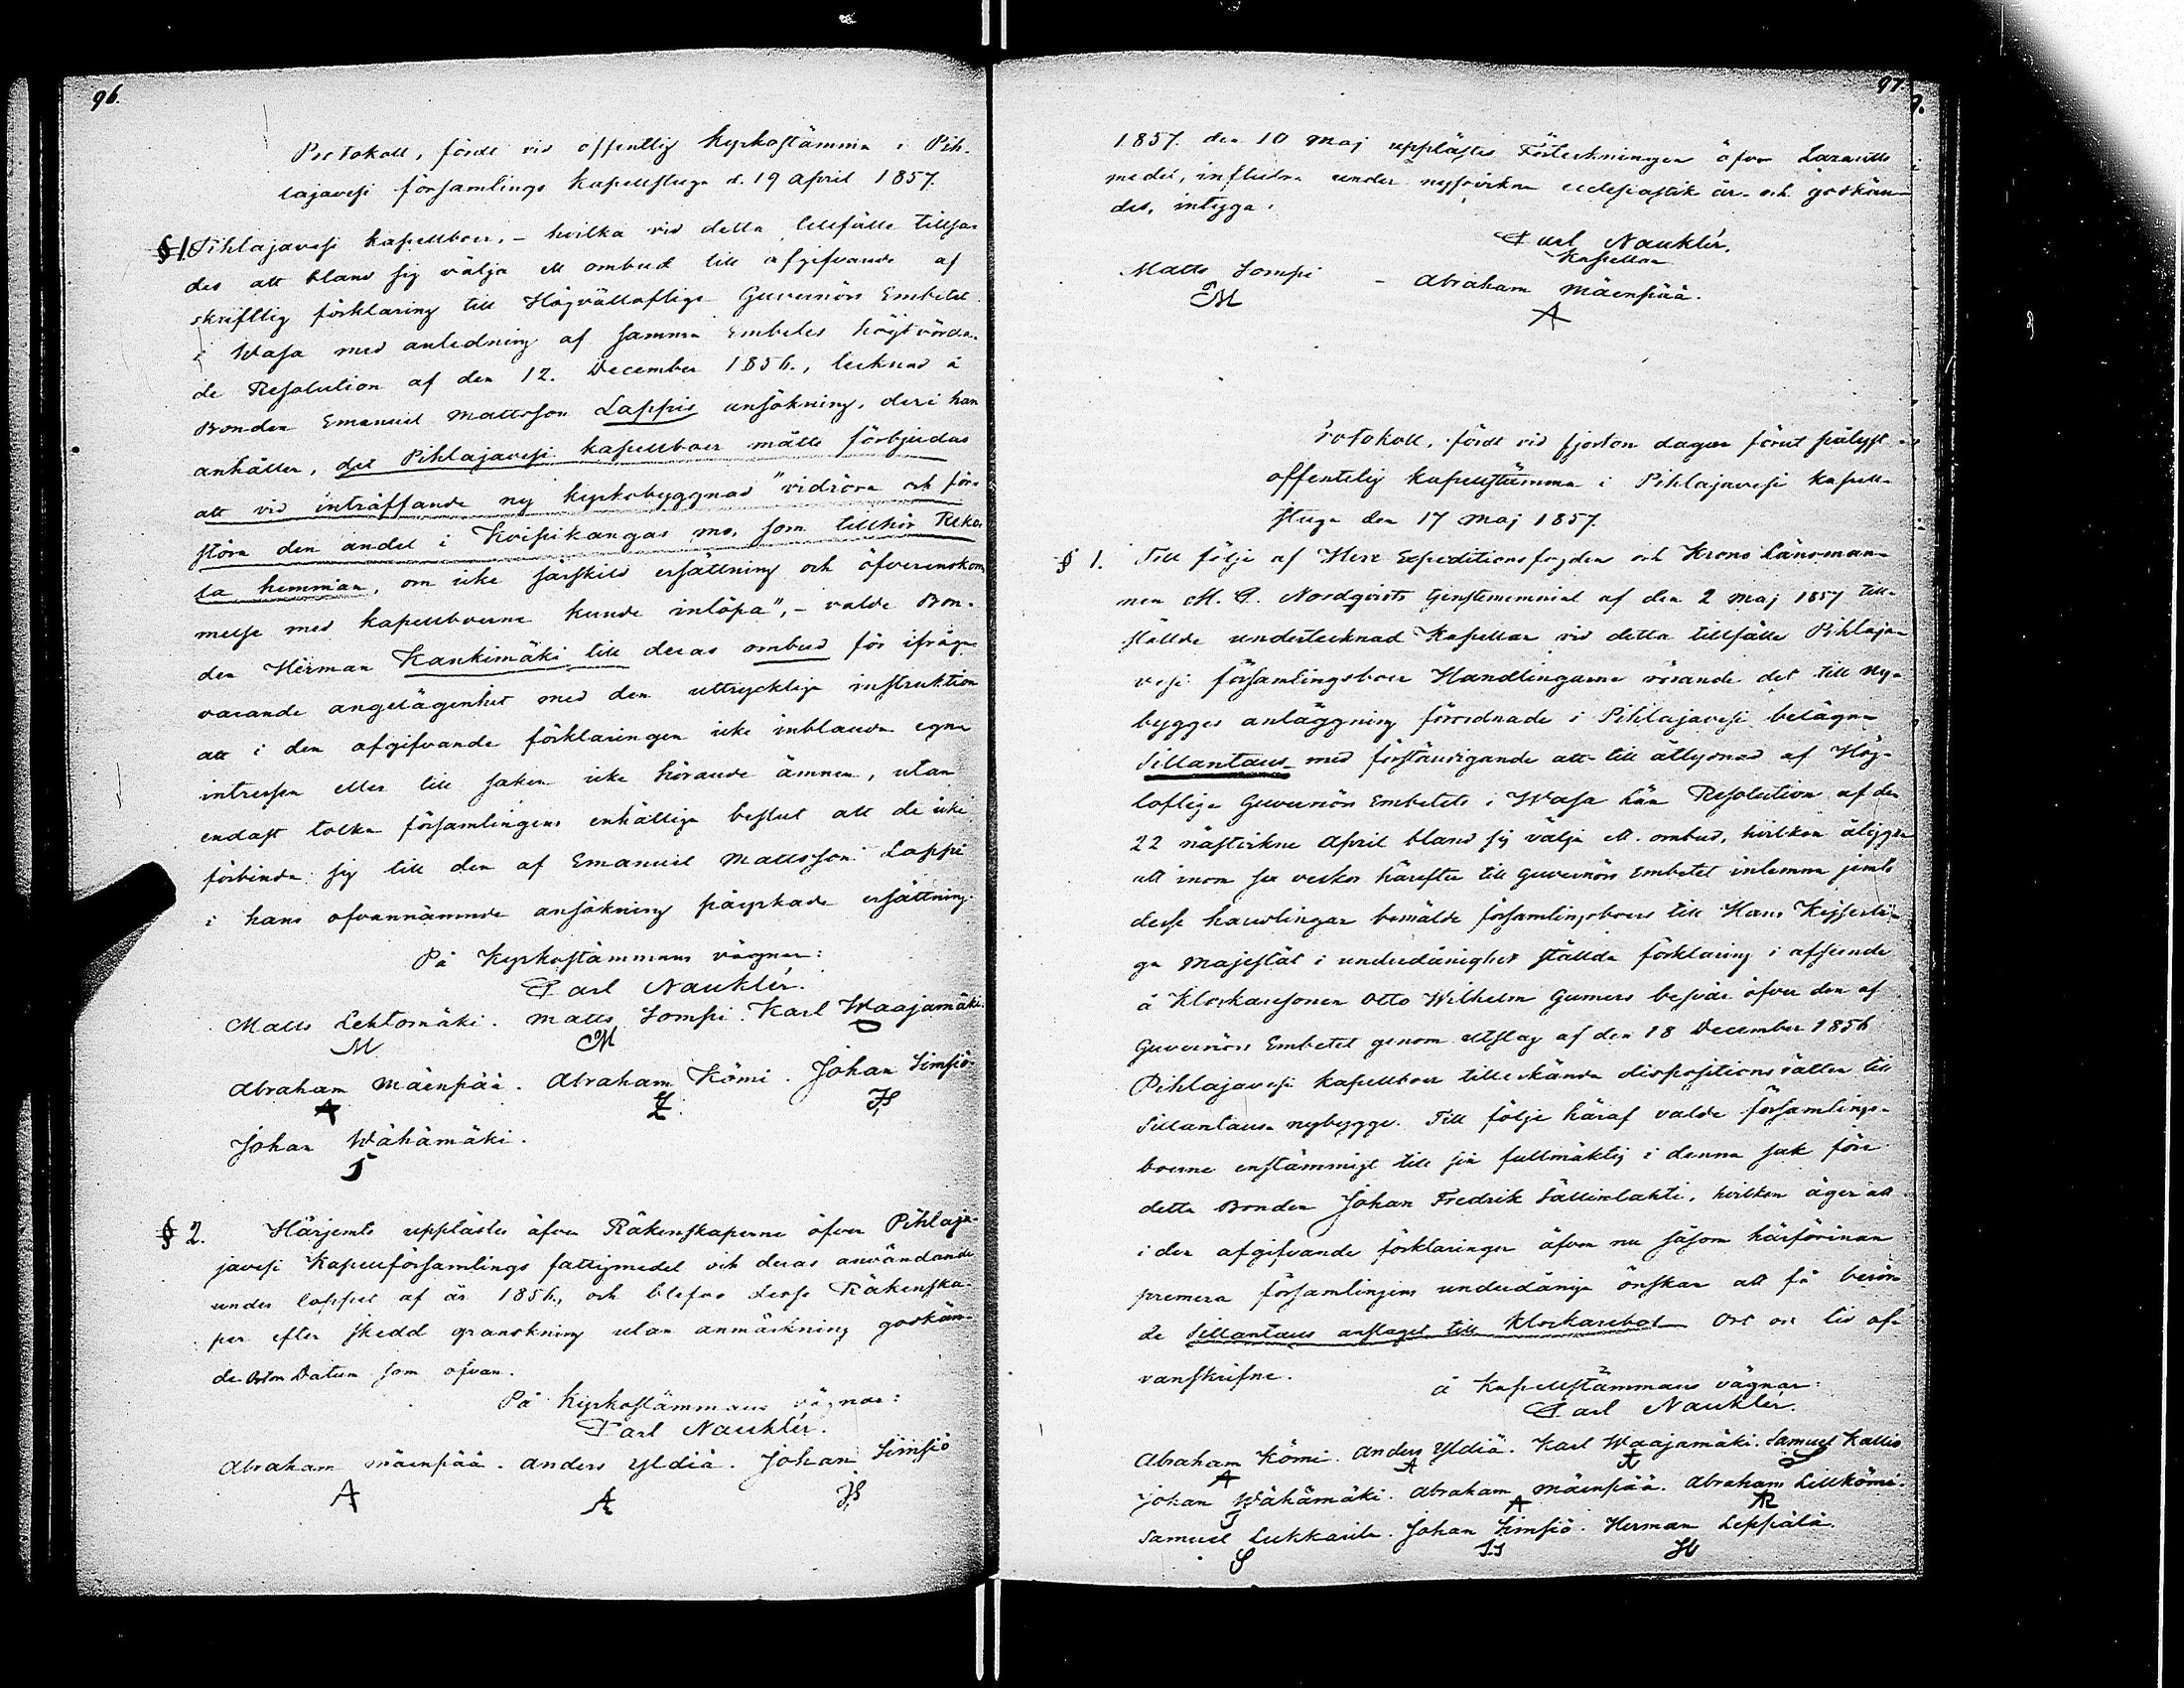 96.
Protokoll, fördt vid offentlig Kyrkostämma i Pih-
lajavesi församlings Kapellstuga d. 19 April 1857.
§ 1. Pihlajavesi kapellboer, – hvilka vid detta tillfälle tillsa-
des att bland sig välja ett ombud till afgifvande af
skriftlig förklaring till Högvällofliga Guvernörs Embetet
i Wasa med anledning af samma Embetes högtvörda-
de Resolution af den 12. December 1856., tecknad å
Bonden Emanuel Mattsson Lappis ansökning, deri han
anhåller, det Pihlajavesi kapellboer måtte förbjudas
att vid inträffande ny kyrkobyggnad "vidröra och för-
störa den andel i Kvisikangas mo, som tillhör
la hemman, om icke särskild ersättning och öfverenskom
melse med kapellboerne kunde inlöpa", – valde Bon-
den Herman Kankimäki till deras ombud för ifråga
varande angelägenhet med den uttryckliga instruktion
att i den afgifvande förklaringen icke inblanda egna
intressen eller till saken icke hörande ämnen, utan
endast tolka församlingens enhälliga beslut att de icke
förbinda sig till den af Emanuel Mattsson Lappi
i hans ofvannämnde ansökning påyrkade ersättning.
På Kyrkostämmans vägnar:
Carl Nauklér.
Matts Lehtomäki. Matts Sompi. Karl Waajamäki.
M M
Abraham Mäenpää. Abraham Kömi. Johan Simsiö.
A JS
Johan Wähämäki.
J
§ 2. Härjemte upplästes äfven Räkenskaperne öfver Pihlaja-
javesi Kapellförsamlings fattigmedel och deras användande
under loppet af år 1856., och blefvo desse Räkenska-
per efter skedd granskning utan anmärkning godkän-
de. Datum som ofvan.
På Kyrkostämmans vägnar:
Carl Nauklér.
Abraham Mäenpää. Anders Yldiä. Johan Simsiö
A A JS
97.
1857. den 10 Maj upplästes Förteckningen öfver Lazaretts
medel, influtna under nyssvikna ecclesiastik år och godkän-
des, intyga:
Carl Nauklér.
Kapellan
Matts Sompi – Abraham Mäenpää.
M A
Protokoll, fördt vid fjorton dagar förut pålyst
offentelig Kapellstämma i Pihlajavesi kapell-
stuga den 17 Maj 1857.
§ 1. Till följe af Herr Expeditionsfogden och Krono Länsman-
nen M. G. Nordqvists tjenstememorial af den 2 Maj 1857 till-
ställde undertecknad Kapellan vid detta tillfälle Pihlaja-
vesi församlingsboer Handlingarne rörande det till ny-
bygges anläggning förordnade i Pihlajavesi belägna
Sillantaus med förständigande att till åtlydnad af Hög-
lofliga Guvernörs Embetets i Wasa län Resolution af den
22 nästvikne April bland sig välja ett ombud, hvilken åligger
att inom sex veckor härefter till Guvernörs Embetet inlemna jemte
desse handlingar bemälde församlingsboers till Hans Kejserli-
ga Majestät i underdånighet ställda förklaring i afseende
å Klockaresonen Otto Wilhelm Gumers besvär öfver den af
Guvernörs Embetet genom utslag af den 18 December 1856
Pihlajavesi kapellboer tillerkända dispositionsrätten till
Sillantaus nybygge. Till följe häraf valde församlings-
boerne enstämmigt till sin fullmäktig i denna sak före
detta Bonden Johan Fredrik Sällinlahti, hvilken äger att
i den afgifvande förklaringen äfven nu såsom härförinnan
premera församlingens underdåniga önskan att få berör-
de Sillantaus anslaget till klockarebol Ort och tid of-
vanskrifne.
å Kapellstämmans vägnar:
Carl Nauklér.
Abraham Kömi. Anders Yldiä. Karl Waajamäki. Samuel Kallio
A A
Johan Wähämäki. Abraham Mäenpää. Abraham Lillkömi.
J A
Samuel Lukkarila. Johan Simsiö. Herman Leppälä.
S JS H